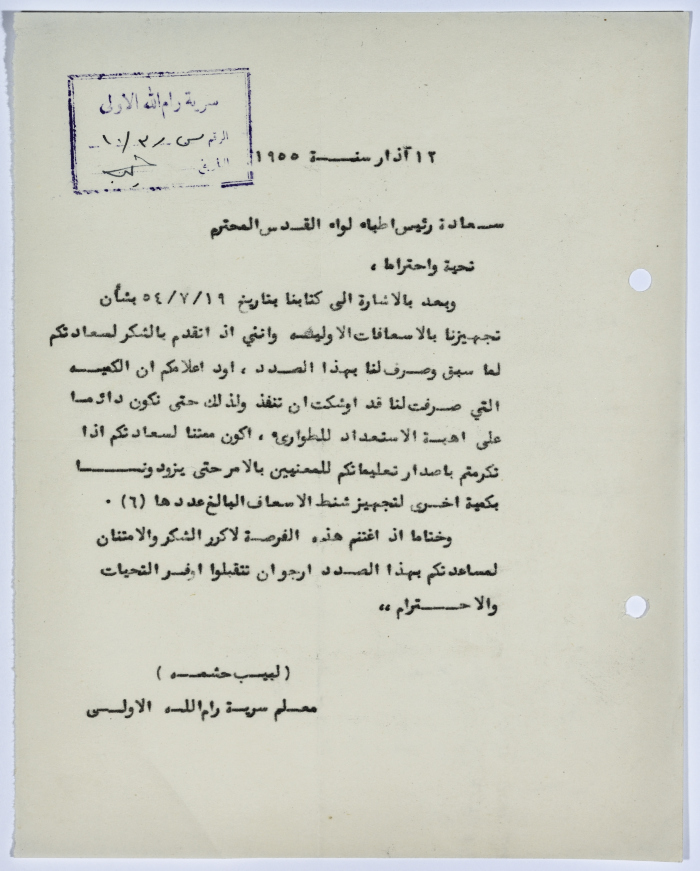 سرية رام الله الاولى
الرقم س ر ٣/١٠
التاريخ
١٢ آذار سنة ١٩٥٥
سعادة رئيس اطباء لواء القدس المحترم
تحية واحتراما ،
وبعد بالاشارة الى كتابنا بتاريخ ٥٤/٧/١٩ بشأن
تجهيزنا بالاسعافات الاوليه وانني اذ اتقدم بالشكر لسعادتكم
لما سبق وصرف لنا بهذا الصدد ، اود اعلامكم ان الكميه
التي صرفت لنا قد اوشكت ان تنفذ ولذلك حتى نكون دائما
على اهبة الاستعداد للطوارىء ، اكون ممتنا لسعادتكم اذا
تكرمتم باصدار تعليماتكم للمعنيين بالامر حتى يزودونا
بكمية اخرى لتجهيز شنط الاسعاف البالغ عددها (٦) ٠
وختاما اذ اغتنم هذه الفرصة لاكرر الشكر والامتنان
لمساعدتكم بهذا الصدد ارجو ان تتقبلوا اوفر التحيات
والاحترام ،،
( لبيب حشمه )
معلم سرية رام الله الاولى